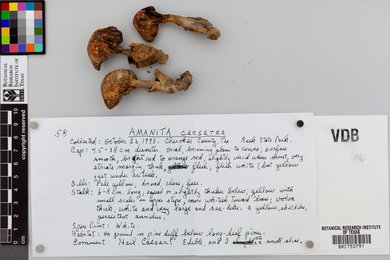 58 AMANITA caesarea
Collected: October 26, 1993. Cherokee County, TX Rusk State Park.
Cap: 4.5-18 cm diameter. Oval becoming plane to convex, surface
smooth, bright red to orange red, slightly viscid when moist, very
striate margin thick, flesh, flesh white (but yellow
just under cuticle.
Gills: Pale yellow, broad, close, free.
Stalk: 6-8 cm long, equal or slightly thicker below, yellow with
small scales on upper stipe, more whitish toward base, volva
thick, white and very large and sac-like, a yellow, skirtlike,
persistent annulus.
Spore Print: White.
Habitat: On ground in pine duff below long-leaf pines.
Comment: "Hail Caesar!" Edible, and I small slice,
VDB
BOTANICAL RESEARCH INSTITUTE
OF TEXAS
BRIT50791
BOTANICAL
RESEARCH
INSTITUTE OF
TEXAS